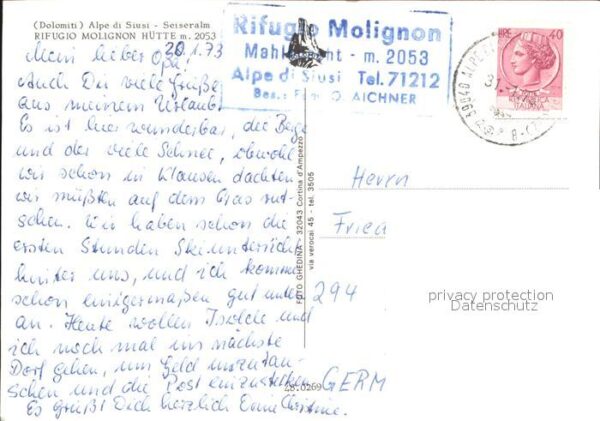 (Dolomiti) Alpe di Siusi - Seiseralm
RIFUGIO MOLIGNON HÜTTE m. 2053
20.1.73
Mein lieber Opa!
Auch Dir viele Grüße
aus meinem Urlaub!
Es ist hier wunderbar, die Berge
und der viele Schnee, obwohl
wir schon in Klausen dachten
wir müßten auf dem Gras rut-
schen. Wir haben schon die
ersten Stunden Skiunterricht
hinter uns, und ich komme
schon einigermaßen gut unten
an. Heute wollen Isolde und
ich noch mal ins nächste
Dorf gehen, um Geld umzutau-
schen und die Post einzustecken
Es grüßt Dich herzlich Deine Christine.
Rifugio Molignon
Mahlknecht - m. 2053
Alpe di Siusi Tel. 71212
Bes.: AICHNER
FOTO GHEDINA - 32043 Cortina d'Ampezzo
via verocai 45 - tel. 3505
LIRE 40
REPUBBLICA
ITALIANA
39040 ALPE
Herrn
Frica
294
privacy protection
Datenschutz
GERM